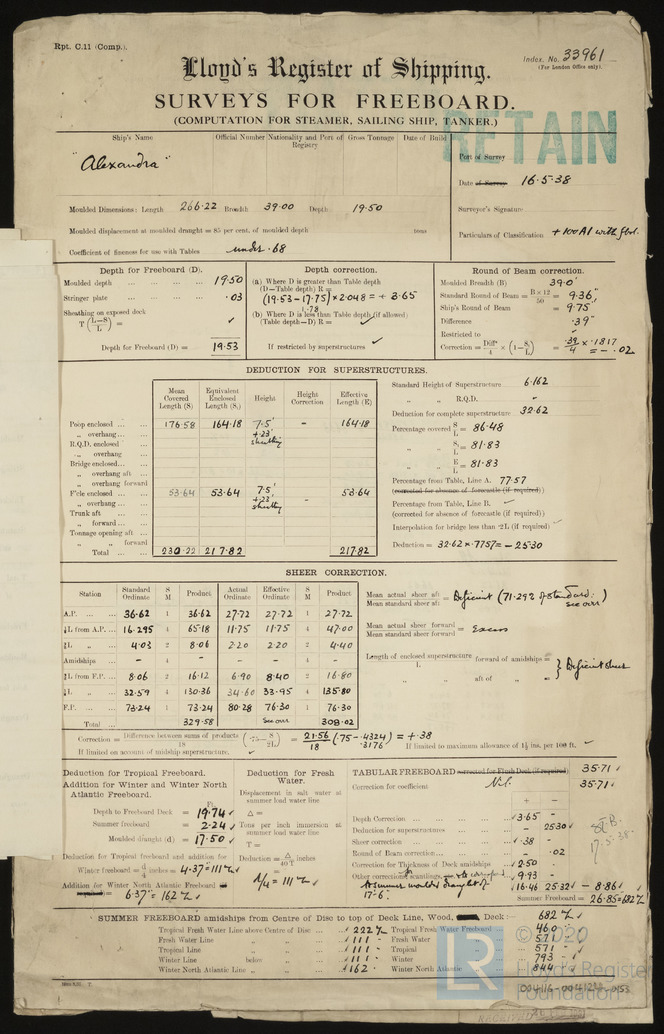 Rpt. C.11 (Comp.).
Index. No. 33961
(For London Office only).
Lloyd's Register of Shipping.
SURVEYS FOR FREEBOARD.
(COMPUTATION FOR STEAMER, SAILING SHIP, TANKER.)
RETAIN
Ship's Name Official Number Nationality and Port of Registry Gross Tonnage Date of Build
"Alexandra"
Port of Survey
Date of Survey 16.5.38
Surveyor's Signature
Particulars of Classification +100A1 with fbd.
Moulded Dimensions: Length 266.22 Breadth 39.00 Depth 19.50
Moulded displacement at moulded draught = 85 per cent. of moulded depth tons
Coefficient of fineness for use with Tables under .68
Depth for Freeboard (D).
Moulded depth ... 19.50
Stringer plate ... .03
Sheathing on exposed deck
T (L-S/L) = ✓
Depth for Freeboard (D) = 19.53
Depth correction.
(a) Where D is greater than Table depth
(D-Table depth) R =
(19.53 - 17.75) × 2.048 = + 3.65
1.78
(b) Where D is less than Table depth (if allowed)
(Table depth-D) R = ✓
If restricted by superstructures ✓
Round of Beam correction.
Moulded Breadth (B) 39.0'
Standard Round of Beam = B×12/50 = 9.36"
Ship's Round of Beam = 9.75"
Difference .39"
Restricted to
Correction = Diff/4 × (1-S/L) = .39/4 × .1817 = - .02
DEDUCTION FOR SUPERSTRUCTURES.
Mean Covered Length (S) Equivalent Enclosed Length (S₁) Height Height Correction Effective Length (E)
Poop enclosed ... 176.58 164.18 7.5' - 164.18
„ overhang ... +.23'
R.Q.D. enclosed sheathg
„ overhang
Bridge enclosed...
„ overhang aft
„ overhang forward
F'cle enclosed ... 53.64 53.64 7.5' - 53.64
„ overhang ... +.23'
Trunk aft sheathg
„ forward ...
Tonnage opening aft
„ „ forward
Total ... 230.22 217.82 217.82
Standard Height of Superstructure 6.162
„ „ R.Q.D. -
Deduction for complete superstructure 32.62
Percentage covered S/L = 86.48
„ „ S₁/L = 81.83
„ „ E/L = 81.83
Percentage from Table, Line A. 77.57
(corrected for absence of forecastle (if required))
Percentage from Table, Line B. ✓
(corrected for absence of forecastle (if required))
Interpolation for bridge less than .2L (if required) ✓
Deduction = 32.62 × .7757 = - 25.30
SHEER CORRECTION.
Station Standard Ordinate S M Product Actual Ordinate Effective Ordinate S M Product
A.P. ... 36.62 1 36.62 27.72 27.72 1 27.72
⅙L from A.P. ... 16.295 4 65.18 11.75 11.75 4 47.00
⅓L „ ... 4.03 2 8.06 2.20 2.20 2 4.40
Amidships - 4 - - - 4 -
⅓L from F.P. ... 8.06 2 16.12 6.90 8.40 2 16.80
⅙L „ ... 32.59 4 130.36 34.60 33.95 4 135.80
F.P. ... 73.24 1 73.24 80.28 76.30 1 76.30
Total ... 329.58 See over 308.02
Mean actual sheer aft / Mean standard sheer aft = Deficient (71.292 of standard: see over)
Mean actual sheer forward / Mean standard sheer forward = Excess
Length of enclosed superstructure forward of amidships = } Deficient sheer
L
„ „ aft of „ =
Correction = Difference between sums of products/18 (.75 - S/2L) = 21.56/18 (.75 - .4324) = + .38
.3176
If limited on account of midship superstructure. ✓ If limited to maximum allowance of 1½ ins. per 100 ft. ✓
Deduction for Tropical Freeboard.
Addition for Winter and Winter North Atlantic Freeboard.
Ft.
Depth to Freeboard Deck = 19.74 ✓
Summer freeboard = 2.24 ✓
Moulded draught (d) = 17.50 ✓
Deduction for Tropical freeboard and addition for
Winter freeboard = d/4 inches = 4.37 = 111 ✓
Addition for Winter North Atlantic Freeboard (if required) =
6.37" = 162 ✓
Deduction for Fresh Water.
Displacement in salt water at summer load water line
Δ =
Tons per inch immersion at summer load water line
T =
Deduction = Δ/40T inches
=
d/4 = 111 ✓
TABULAR FREEBOARD corrected for Flush Deck (if required) 35.71 ✓
Correction for coefficient Nil. 35.71 ✓
+ -
Depth Correction ... 3.65 -
Deduction for superstructures ... - 25.30 ✓
Sheer correction ... .38 -
Round of Beam correction... - .02
Correction for Thickness of Deck amidships ... 2.50
Other corrections, scantlings 9.93
16.46 25.32 ✓ - 8.86 ✓
to summer moulded draught of 17'-6". Summer Freeboard = 26.85 = 682
17.5.38
SUMMER FREEBOARD amidships from Centre of Disc to top of Deck Line, Wood, Deck :- 682
Tropical Fresh Water Line above Centre of Disc ... 222 Tropical Fresh Water Freeboard 460
Fresh Water Line „ „ ... 111 Fresh Water „ 571
Tropical Line „ „ ... 111 Tropical „ 571
Winter Line below „ ... 111 Winter „ 793
Winter North Atlantic Line „ „ ... 162 Winter North Atlantic „ 844
LR
© 2020
Lloyd's Register
Foundation
004116-004124-0153